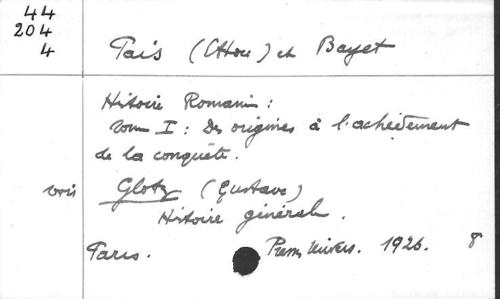 44
204
4
Pais (Ettore) et Bayet
Histoire Romaine :
tome I : Des origines à l'achèvement
de la conquête.
voir Glotz (Gustave)
Histoire générale.
Paris. Press. Univers. 1926. 8